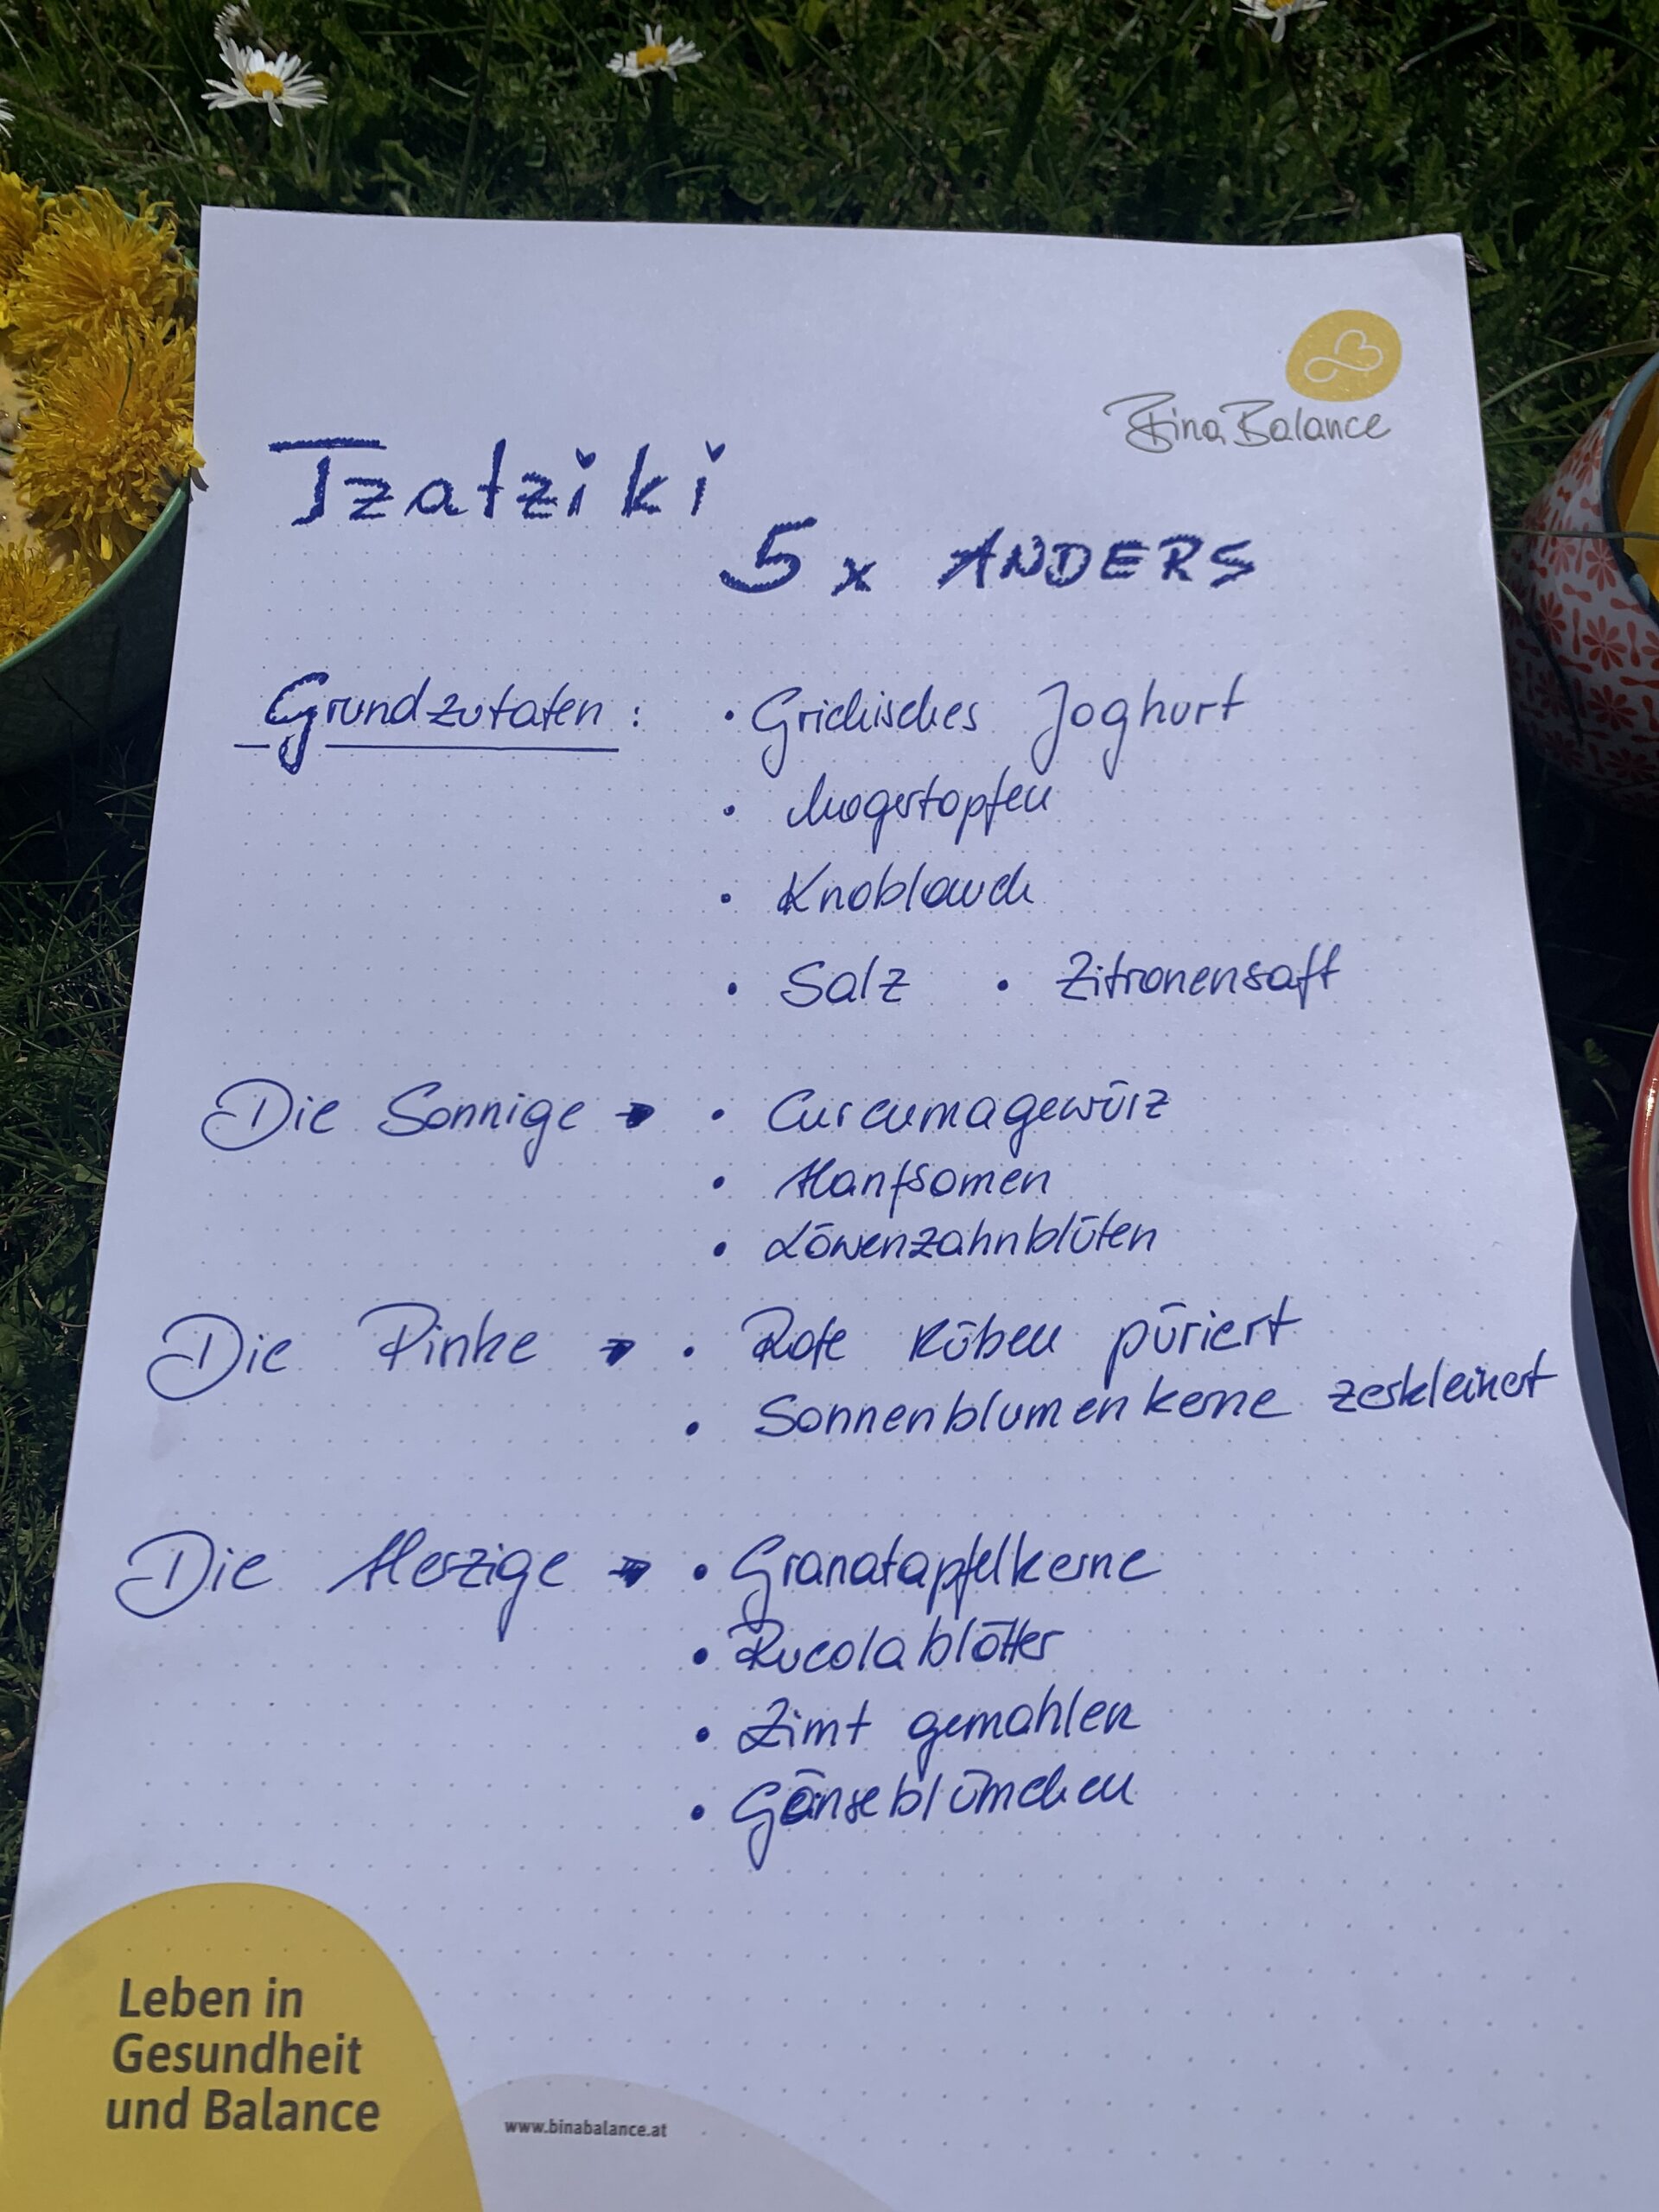 Bina Balance
Tzatziki
5 x ANDERS
Grundzutaten : • Grichisches Joghurt
• Magertopfen
• Knoblauch
• Salz • Zitronensaft
Die Sonnige → • Curcumagewürz
• Hanfsamen
• Löwenzahnblüten
Die Pinke → • Rote Rüben püriert
• Sonnenblumenkerne zerkleinert
Die Herzige → • Granatapfelkerne
• Rucolablätter
• Zimt gemahlen
• Gänseblümchen
Leben in
Gesundheit
und Balance
www.binabalance.at